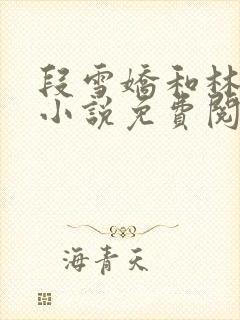 段雪嬌和林
小說免費閱
海青天